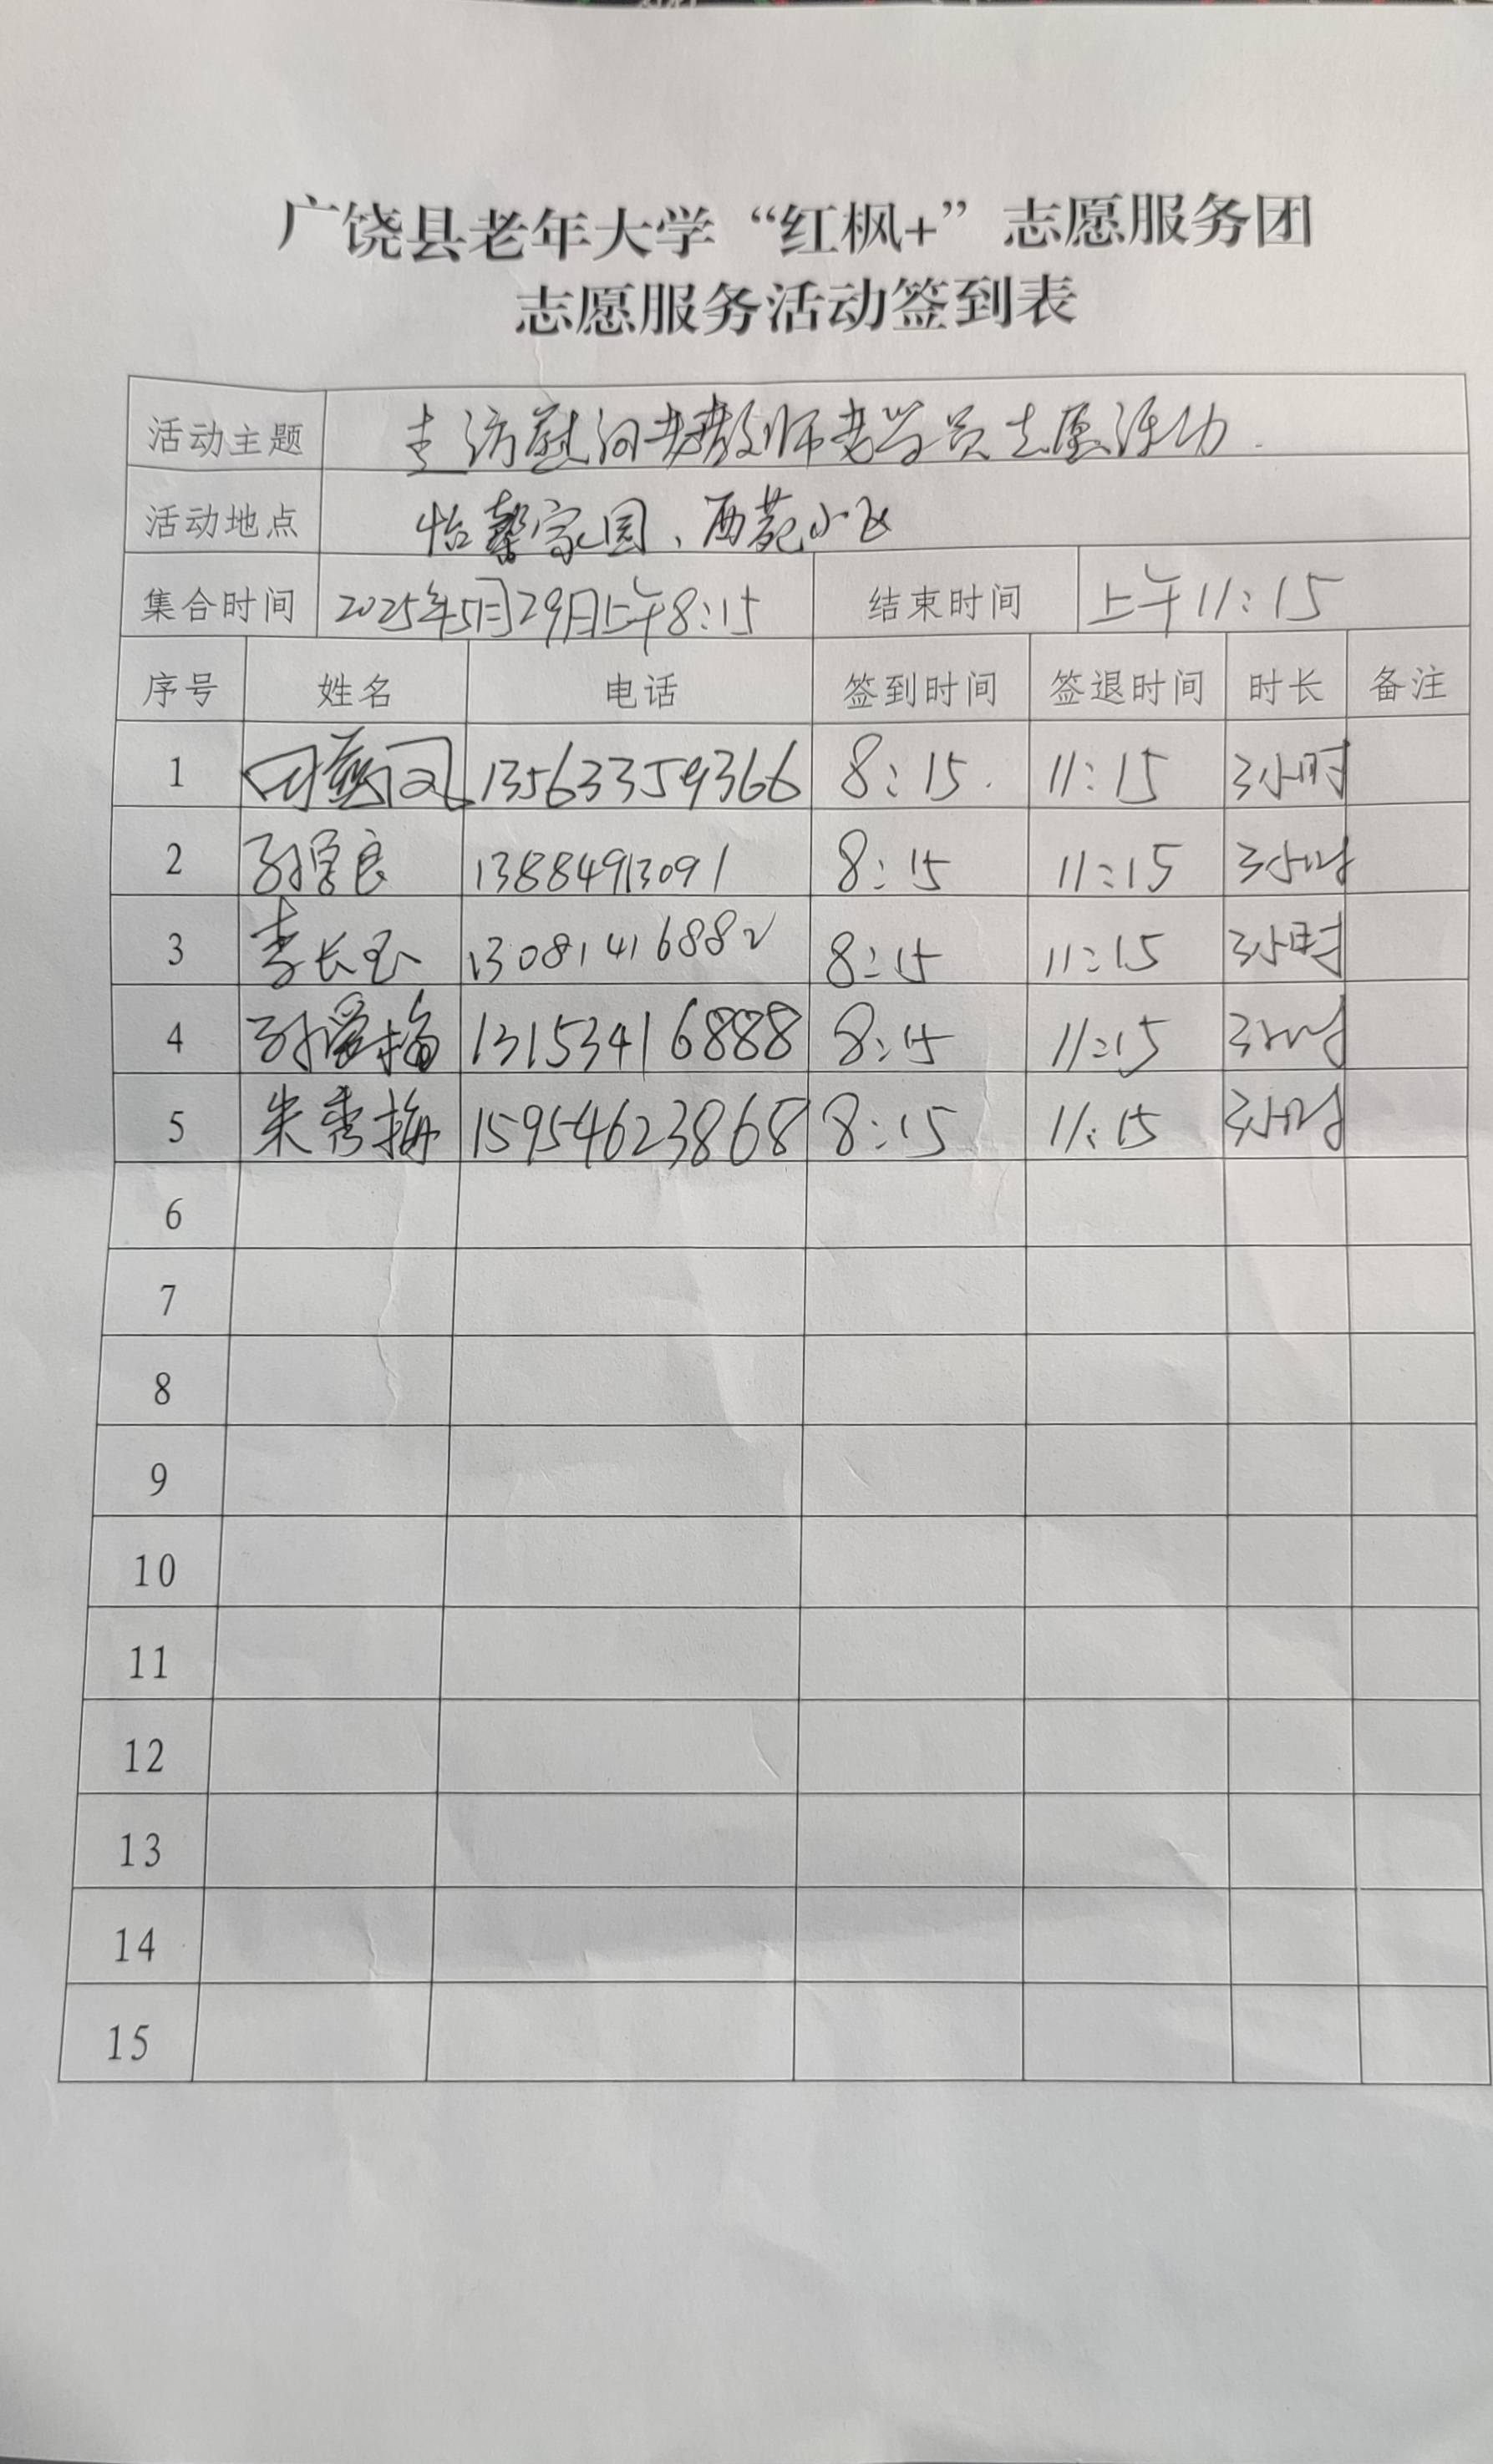 广饶县老年大学“红枫+”志愿服务团
志愿服务活动签到表
活动主题 走访慰问老教师老学员志愿活动
活动地点 怡馨家园、西苑小区
集合时间 2025年5月29日上午8:15 结束时间 上午11:15
序号 姓名 电话 签到时间 签退时间 时长 备注
1 13563359366 8:15. 11:15 3小时
2 孙学良 13884913091 8:15 11:15 3小时
3 李长玉 13081416882 8:15 11:15 3小时
4 孙爱梅 13153416888 8:15 11:15 3小时
5 朱秀梅 15954623868 8:15 11:15 3小时
6
7
8
9
10
11
12
13
14
15